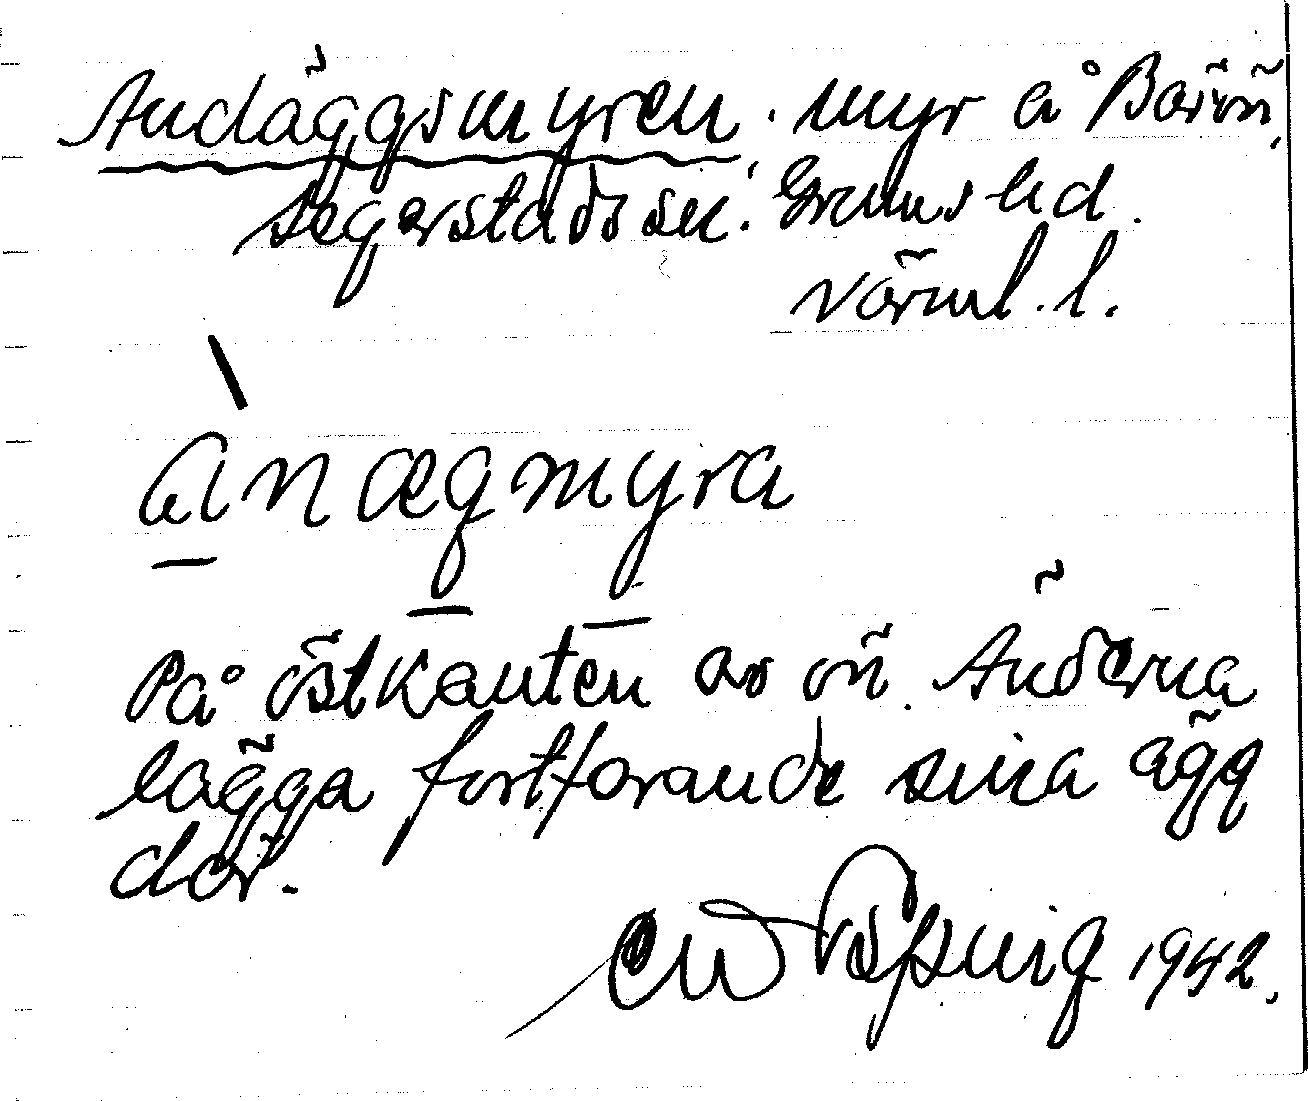 Andäggsmyren. myr å Bärön,
Segerstads sn. Grums hd.
värml. l.
ànægmyra
På östkanten av ön. Änderna
lägga fortfarande sina ägg
där.
1942.